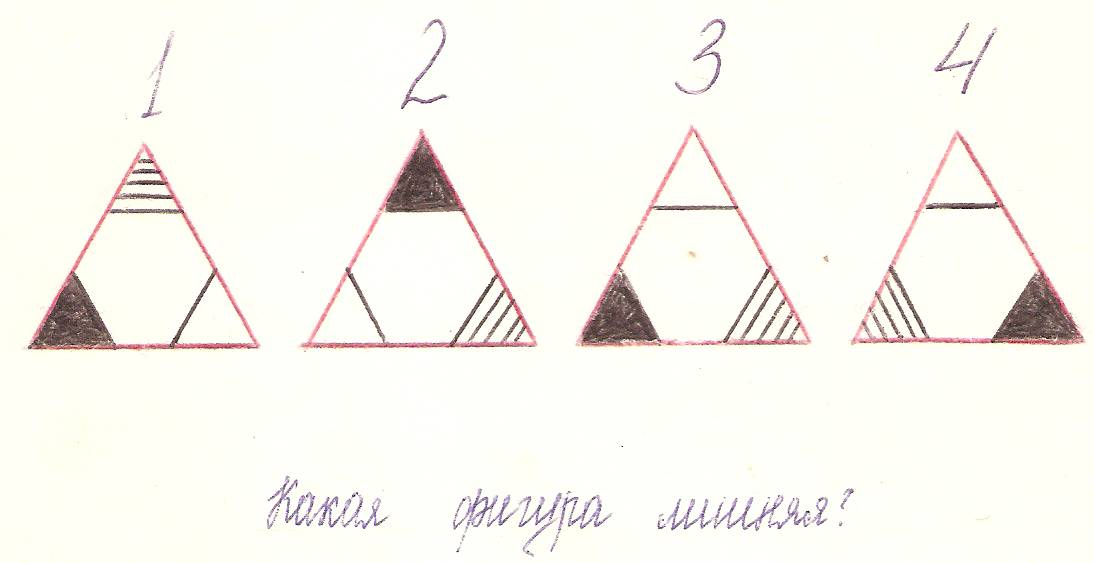 1 2 3 4
Какая фигура лишняя?